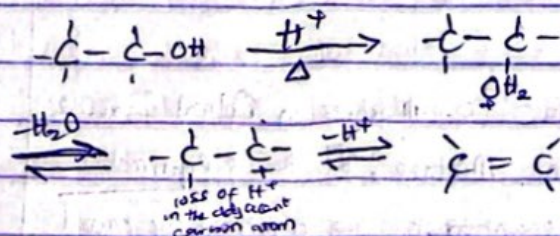 -C-C-OH H⁺ Δ -C-C-
OH₂ +
-H₂O -C-C- + -H⁺ C=C
loss of H⁺
in the adjacent
carbon atom